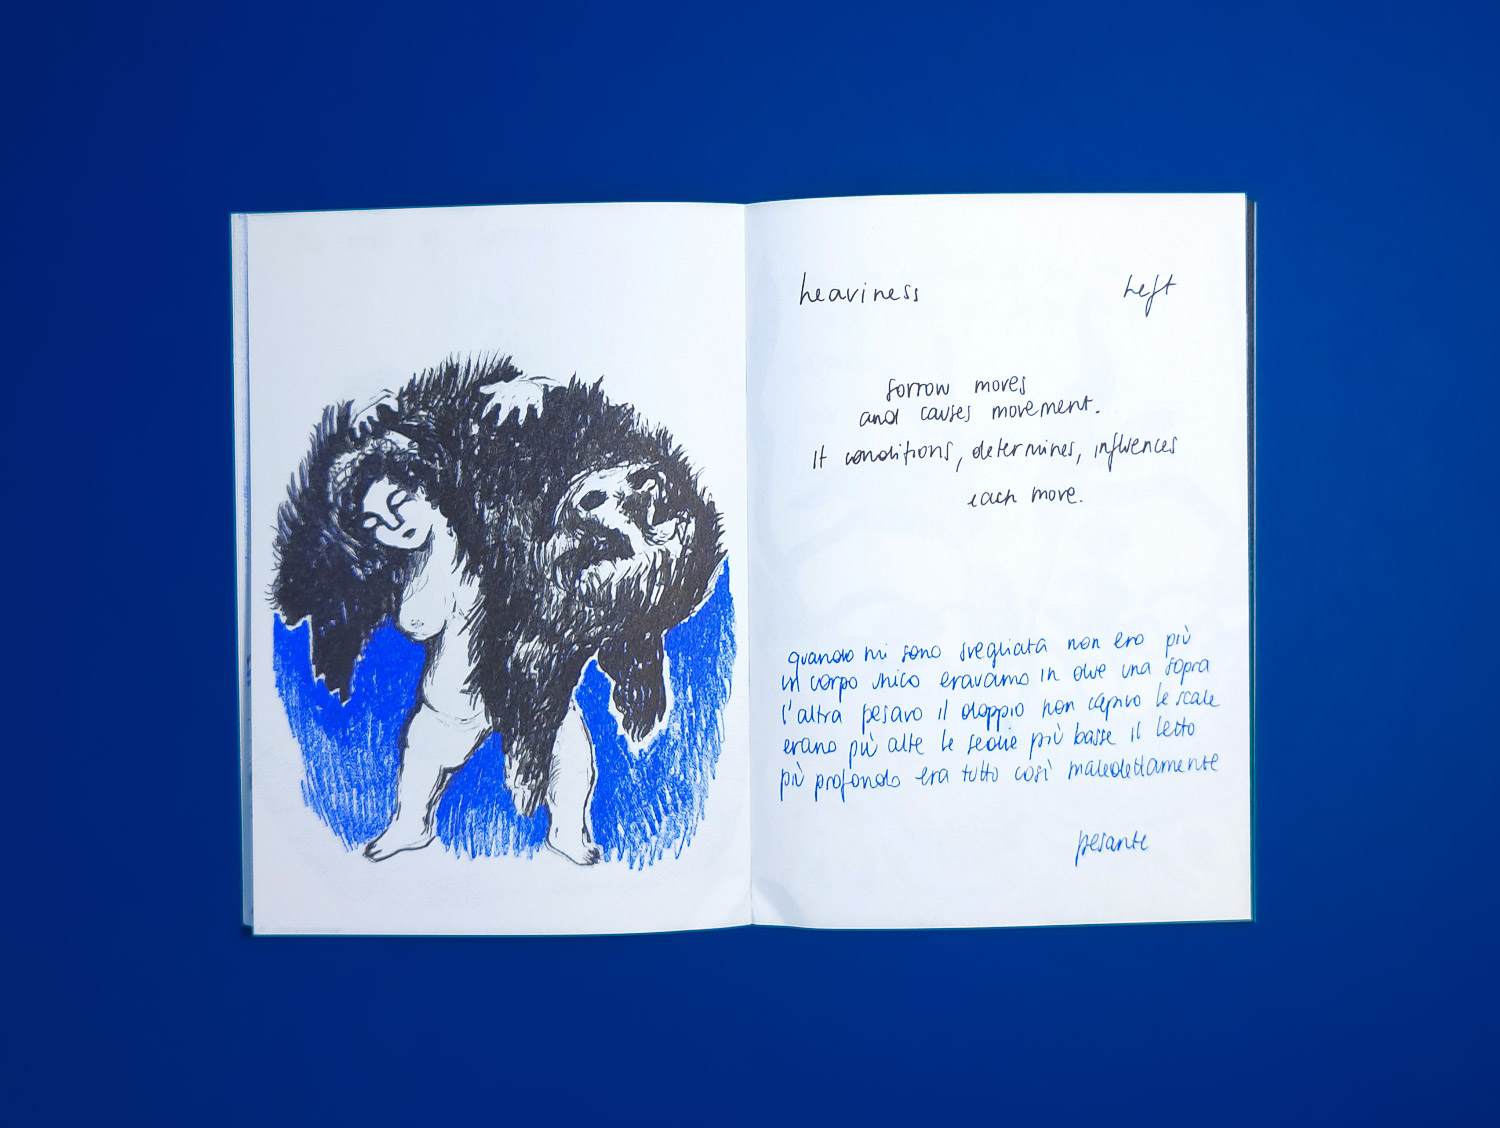 heaviness heft
sorrow moves
and causes movement.
It conditions, determines, influences
each move.
quando mi sono svegliata non ero più
in corpo unico eravamo in due una sopra
l'altra pesavo il doppio non capivo le scale
erano più alte le sedie più basse il letto
più profondo era tutto così maledettamente
pesante